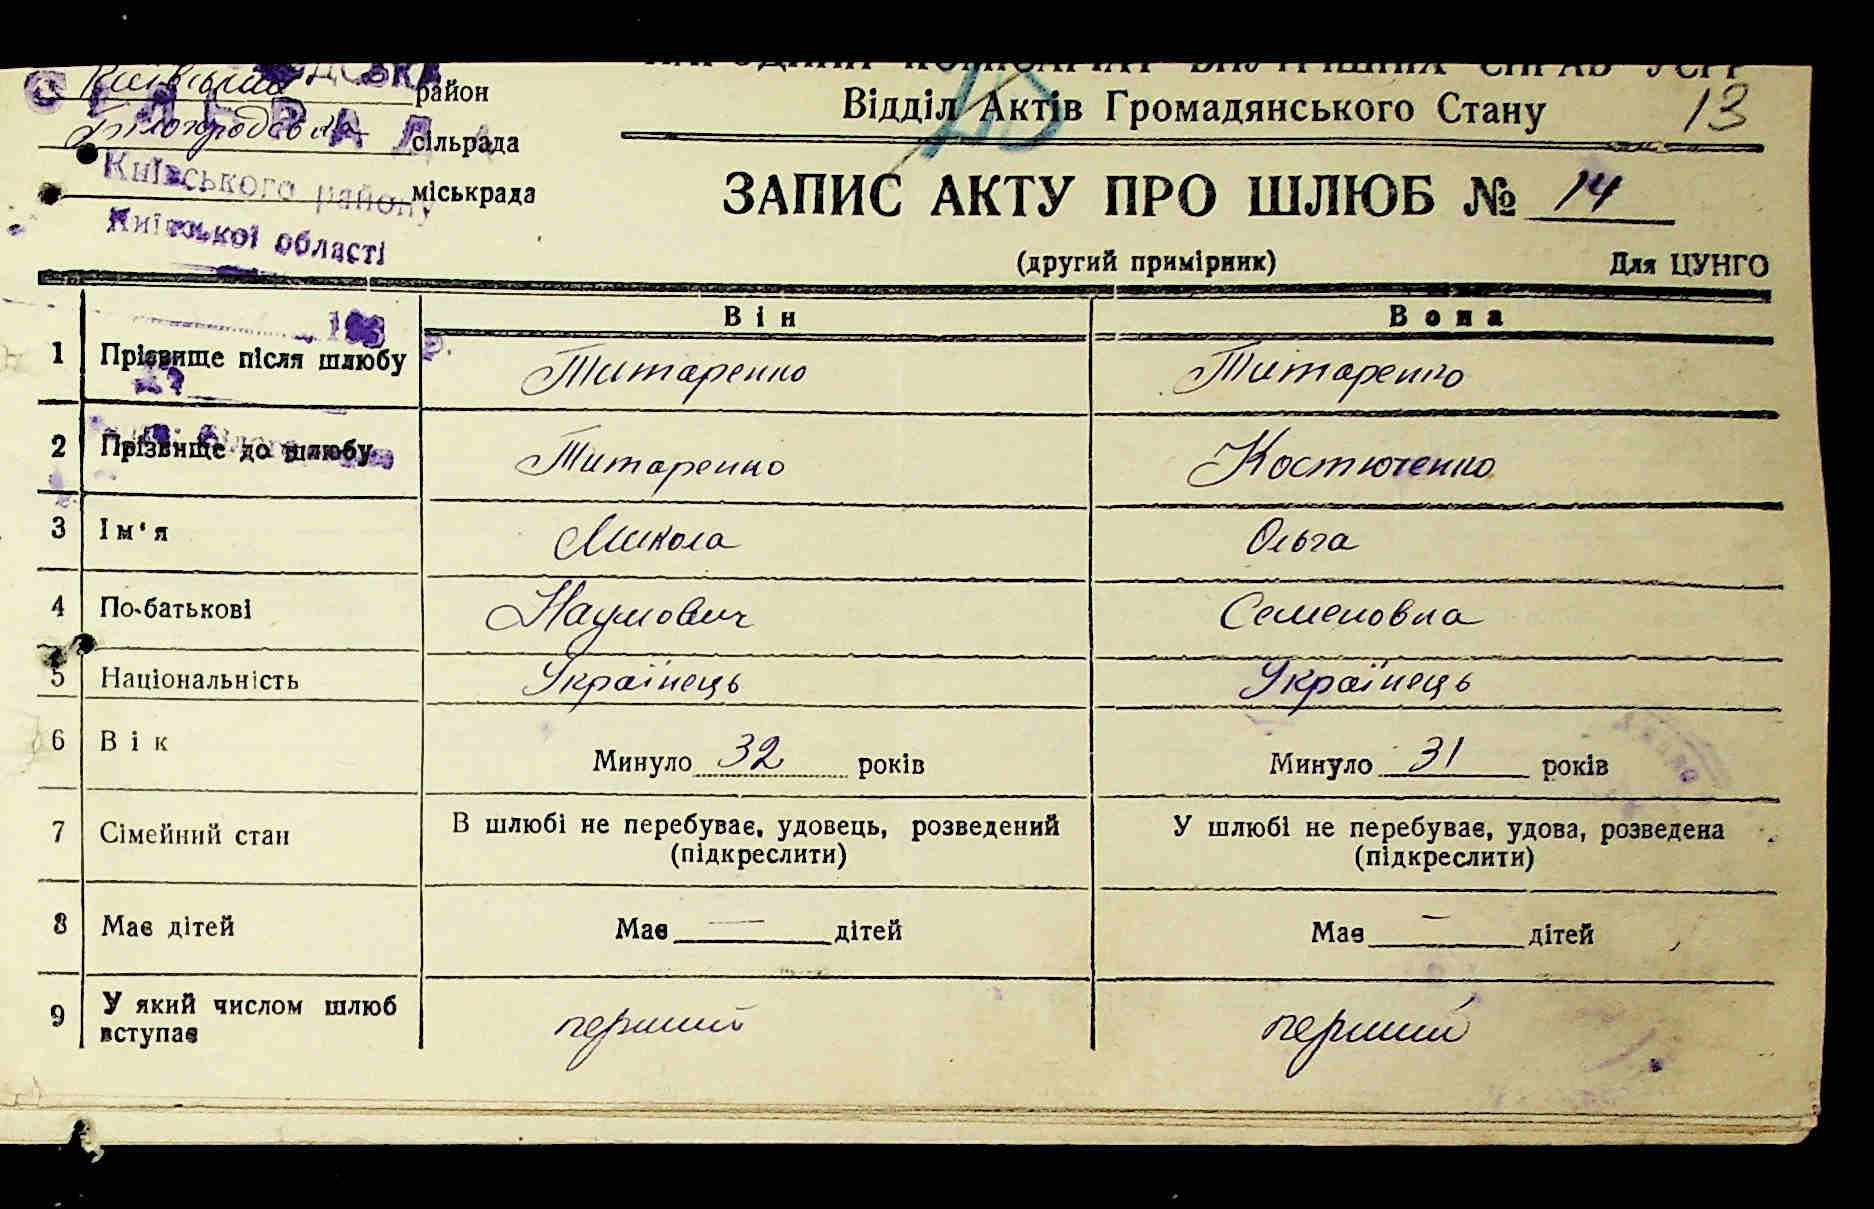 Київський район
Білогородська сільрада
міськрада
СІЛЬРАДА
Київського району
Київської області
НАРОДНИЙ КОМІСАРІАТ ВНУТРІШНІХ СПРАВ УСРР
Відділ Актів Громадянського Стану
13
ЗАПИС АКТУ ПРО ШЛЮБ № 14
(другий примірник) Для ЦУНГО
Він Вона
1 Прізвище після шлюбу Титаренко Титаренко
2 Прізвище до шлюбу Титаренко Костюченко
3 Ім‘я Микола Ольга
4 По-батькові Наумович Семеновна
5 Національність Українець Українець
6 Вік Минуло 32 років Минуло 31 років
7 Сімейний стан В шлюбі не перебуває, удовець, розведений У шлюбі не перебуває, удова, розведена
(підкреслити) (підкреслити)
8 Має дітей Має — дітей Має — дітей
9 У який числом шлюб
вступає перший перший